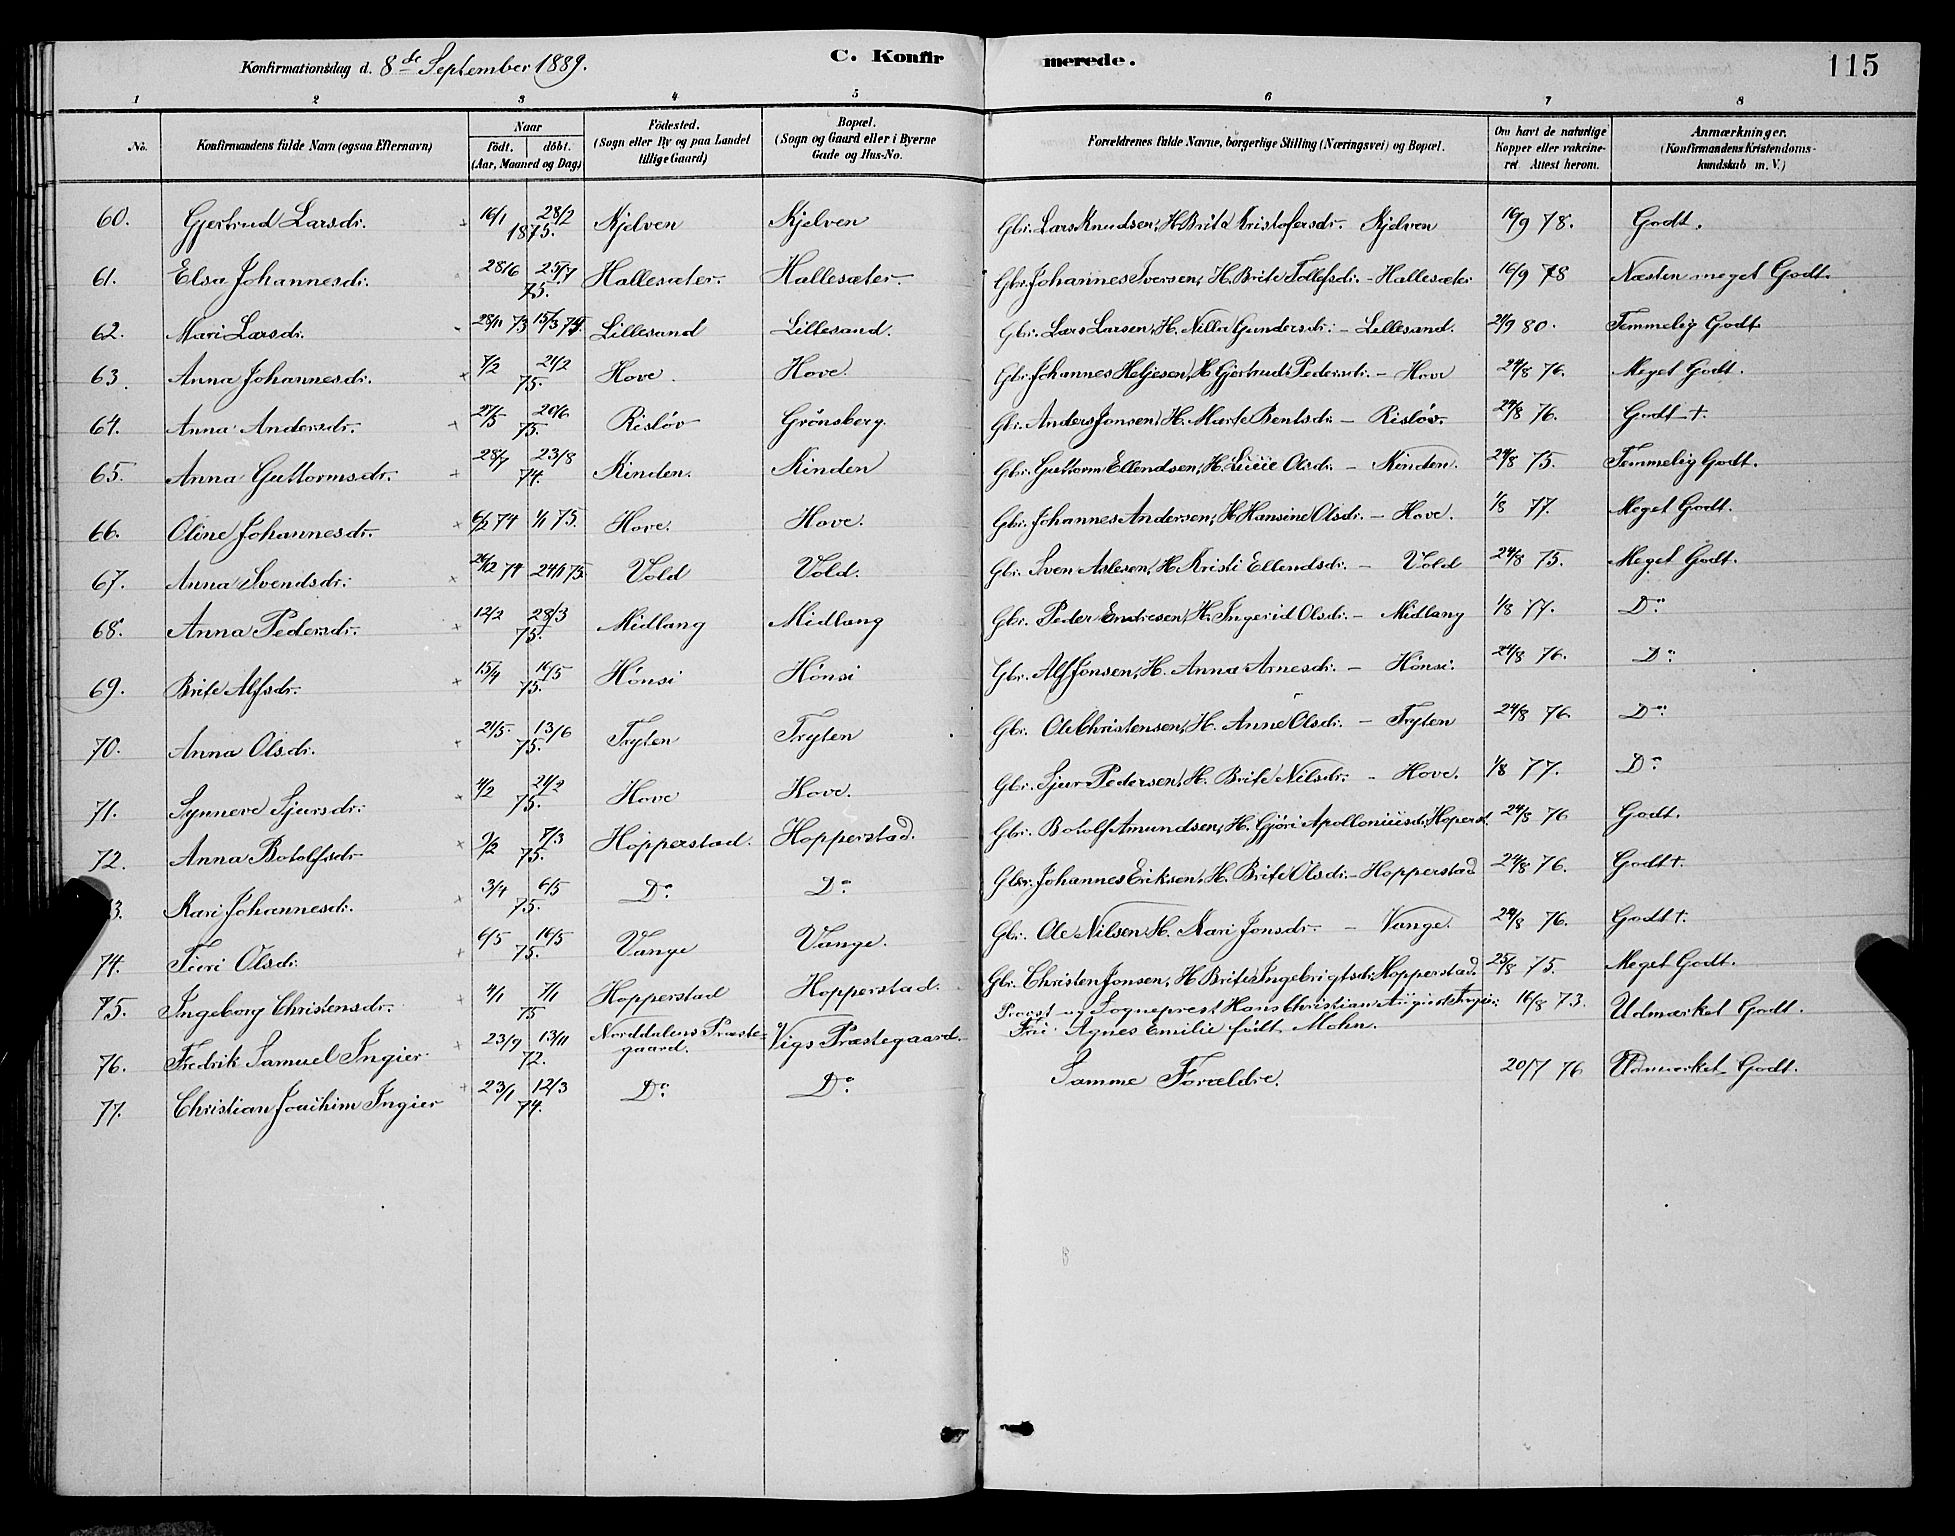 Konfirmationsdag d. 8de September 1889. C. Konfirmerede. 115
1 2 3 4 5 6 7 8
No. Konfirmandens fulde Navn (ogsaa Efternavn) Naar födt. döbt. (Aar, Maaned og Dag) Födested. (Sogn eller By og paa Landet tillige Gaard) Bopæl. (Sogn og Gaard eller i Byerne Gade og Hus-No. Forældrenes fulde Navne, borgerlige Stilling (Næringsvei) og Bopæl. Om havt de naturlige Kopper eller vakcineret Attest herom. Anmærkninger. (Konfirmandens Kristendomskundskab m. V.)
60. Gjertrud Larsdr. 16/1 28/2 1875. Kjelven Kjelven Gbr. Lars Knudsen, H. Brita Kristofersdr. Kjelven 16/9 78. Godt.
61. Elsa Johannesdr. 28/6 25/7 75. Hallesæter. Hallesæter. Gbr. Johannes Iversen, H. Brite Tollefsdr. - Hallesæter 16/9 78 Næsten meget Godt.
62. Mari Larsdr. 28/11 73 15/3 74. Lillesand Lillesand. Gbr. Lars Larsen, H. Nilla Gundersdr. - Lillesand. 24/9 80. Temmelig Godt.
63. Anna Johannesdr. 7/2 21/2 75. Hove. Hove. Gbr. Johannes Heljesen, H. Gjertrud Pedersdr. - Hove 24/8 76. Meget Godt.
64. Anna Andersdr. 27/5 20/6 75. Risløv Grønsberg. Gbr. Anders Jonsen, H. Marte Bentsdr. - Risløv. 24/8 76. Godt +.
65. Anna Guttormsdr. 28/7 23/8 74. Kinden. Kinden Gbr. Guttorm Ellendsen, H. Lucie Olsdr. - Kinden. 24/8 75. Temmelig Godt.
66. Oline Johannesdr. 6/2 74 1/1 75. Hove. Hove. Gbr. Johannes Andersen, H. Hansine Olsdr. - Hove. 1/8 77. Meget Godt.
67. Anna Svendsdr. 26/12 74 24/1 75 Vold Vold. Gbr. Sven Aslesen, H. Kristi Ellendsdr. - Vold 24/8 75. Meget Godt.
68. Anna Pedersdr. 12/2 28/3 75. Midlang Midlang Gbr. Peder Endresen, H. Ingerid Olsdr. - Midlang 1/8 77. Do.
69. Brite Alfsdr. 15/4 16/5 75. Hønsi Hønsi Gbr. Alf Jonsen, H. Anna Arnesdr. - Hønsi. 24/8 76. Do
70. Anna Olsdr. 21/5. 13/6 75. Tryten Tryten Gbr. Ole Christensen, H. Anne Olsdr. - Tryten 24/8 76 Do.
71. Synneve Sjursdr. 4/2 21/2 75. Hove Hove. Gbr. Sjur Pedersen, H. Brite Nilsdr. - Hove. 1/8 77. Do
72. Anna Botolfsdr 9/2 7/3 75. Hopperstad. Hopperstad. Gbr. Botolf Amundsen, H. Gjøri Apolloniusdr. Hoperst. 24/8 76 Godt.
3. Kari Johannesdr. 3/4 6/5 75. Do. Do. Gbr. Johannes Eriksen, H. Brite Olsdr. - Hopperstad 24/8 76. Godt +.
74. Turi Olsdr. 6/5 16/5 75. Vange Vange. Gbr. Ole Nilsen H. Kari Jonsdr. - Vange. 24/8 76. Godt +.
75. Ingeborg Christensdr. 4/1 7/1 75 Hopperstad Hopperstad. Gbr. Christen Jonsen, H. Brite Ingebrigtsdr. Hopperstad. 25/8 75. Meget Godt.
76. Fredrik Samuel Ingier 23/9 13/11 72. Norddalens Præstegaard. Vigs Præstegaard. Provst og Sogneprest Hans Christian August Ingier, Fru Agnes Emilie født Mohn. 16/8 73. Udmærket Godt.
77. Christian Joachim Ingier 23/1 12/3 74. Do. Do. Samme Forældre. 20/7 76 Udmærket Godt.